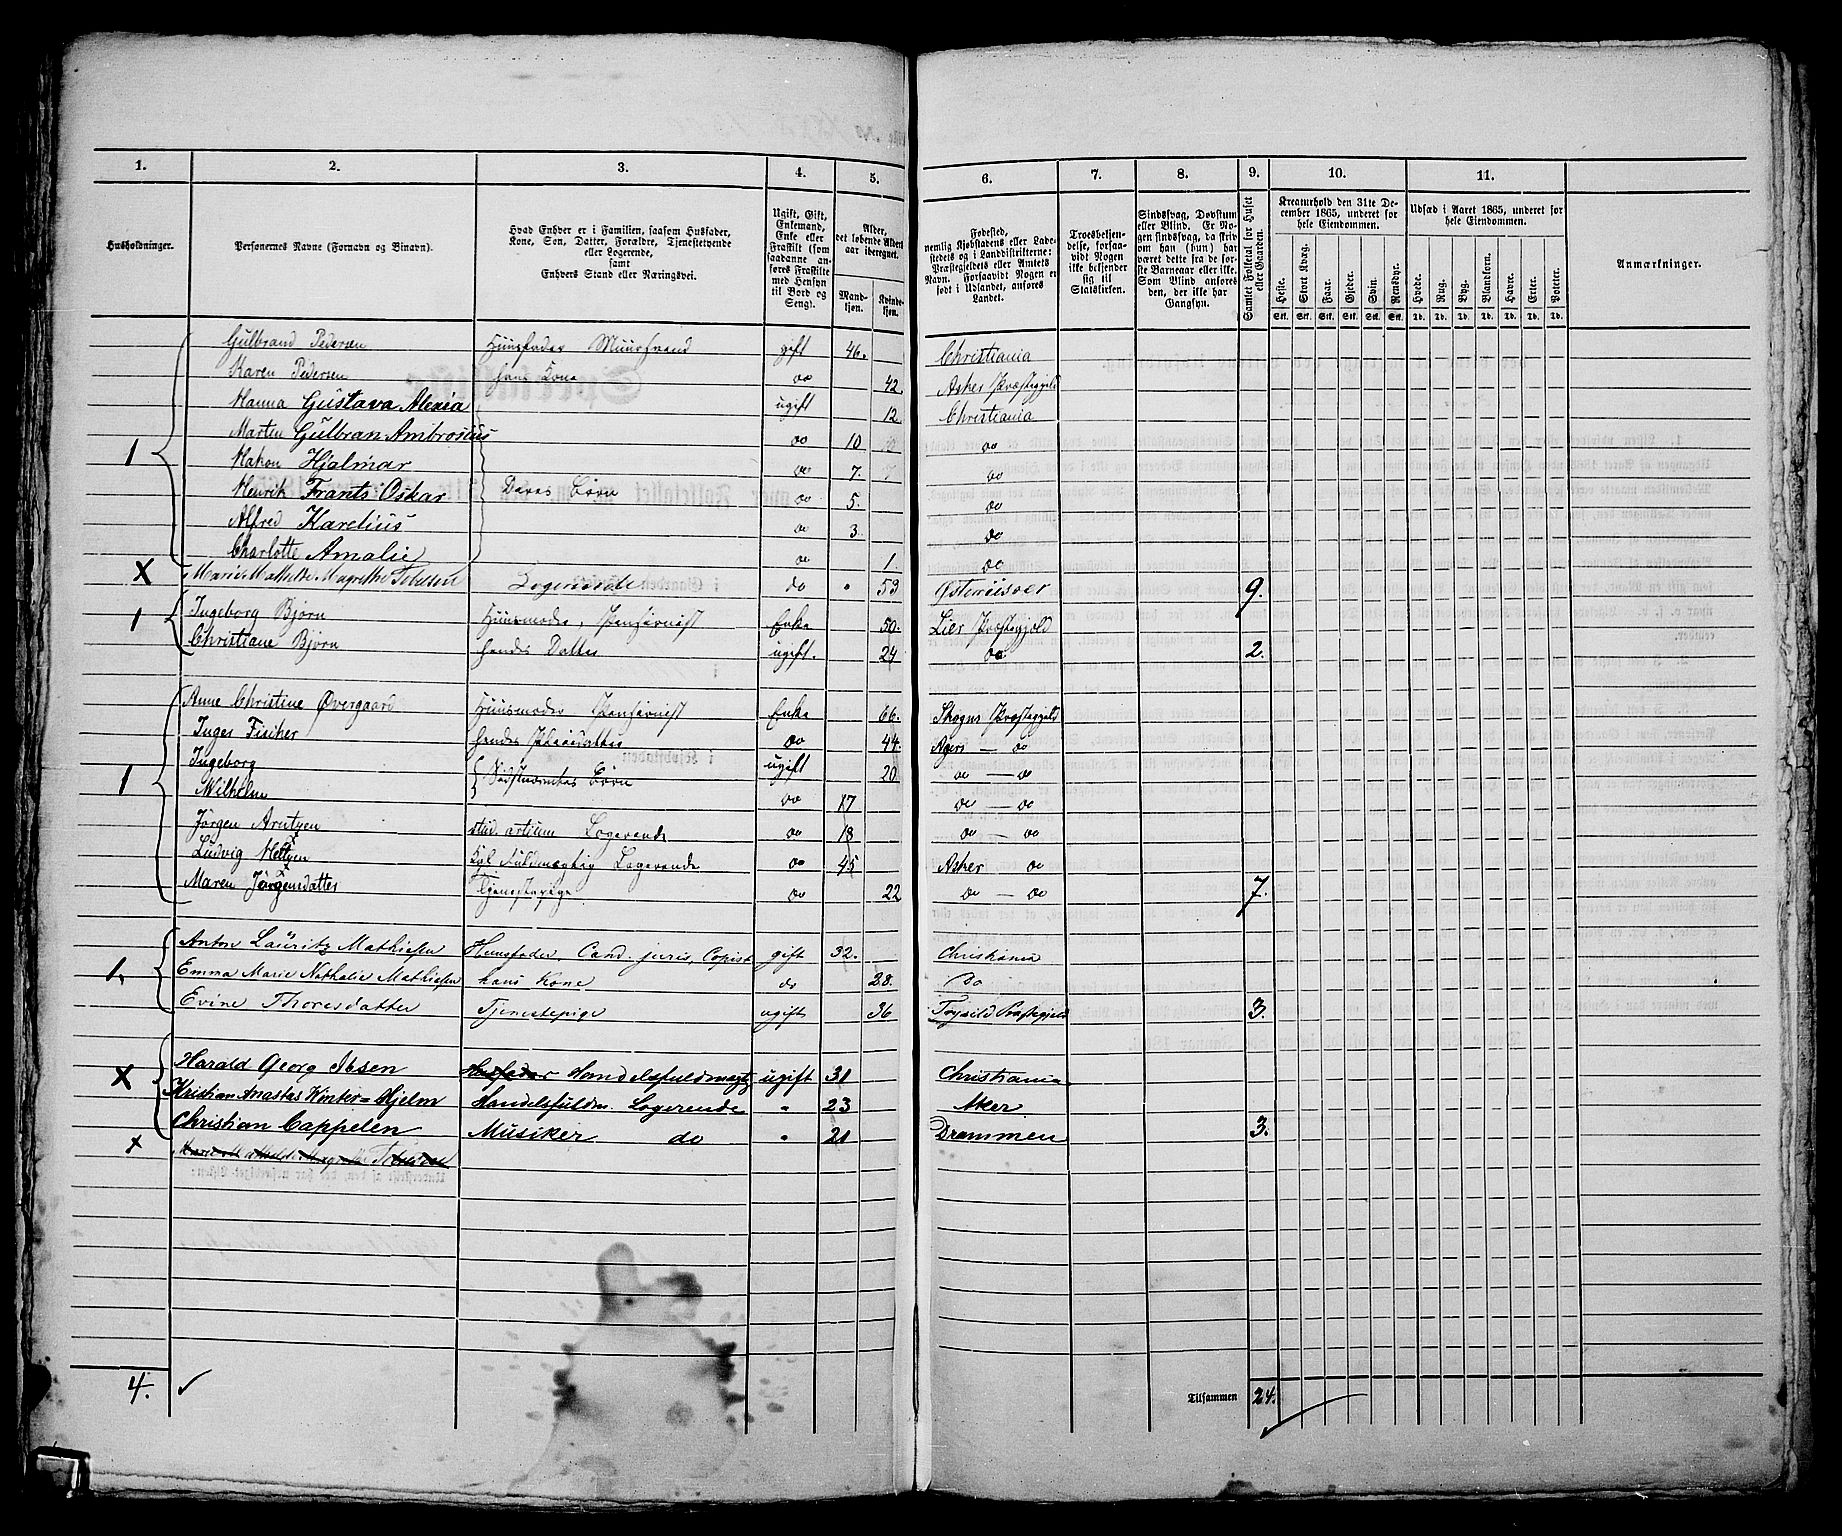 1. 2. 3. 4. 5. 6. 7. 8. 9. 10. 11.
Husholdninger.
Personernes Navne (Fornavn og Binavn).
Hvad Enhver er i Familien, saasom Husfader, Kone, Søn, Datter, Forældre, Tjenestetyende eller Logerende, samt Enhvers Stand eller Næringsvei.
Ugift, Gift, Enkemand, Enke eller Fraskilt (som saadanne anføres Fraskilte med Hensyn til Bord og Seng).
Alder, det løbende Alders aar iberegnet.
Mandkjøn. Kvindekjøn.
Fødested, nemlig Kjøbstadens eller Ladestedets og i Landdistrikterne: Præstegjeldets eller Amtets Navn. Forsaavidt Nogen er født i Udlandet, anføres Landet.
Troesbekjendelse, forsaavidt Nogen ikke bekjender sig til Statskirken.
Sindssvag, Døvstum eller Blind. Er Nogen sindssvag, da skriv om han (hun) har været dette fra de første Barneaar eller ikke. Som Blind anføres den, der ikke har Gangsyn.
Samlet Folketal for Huset eller Gaarden.
Kreaturhold den 31te December 1865, underet for hele Eiendommen.
Heste. Stort Kvæg. Faar. Gjeder. Svin. Rensdyr.
Stk. Stk. Stk. Stk. Stk. Stk.
Udsæd i Aaret 1865, underet for hele Eiendommen.
Hvede. Rug. Byg. Blandkorn. Havre. Erter. Poteter.
Td. Td. Td. Td. Td. Td. Td.
Anmærkninger.
Gulbrand Pedersen Huusfader Muursvend gift 46. Christiania
Karen Pedersen hans Kone do 42. Asker Præstegjeld
Hanna Gustava Alexia ugift 12. Christiania
Marten Gulbran Ambrosius do 10 do
1 Hakon Hjalmar do 7. do
Henrik Frants Oskar Deres Børn do 5. do
Alfred Karelius do 3 do
Charlotte Amalie do 1. do
X Marie Mathilde Magrethe Logerende do 53 Østeriisøer 9.
1 Ingeborg Bjørn Huusmoder, Pensionist Enke 50. Lier Præstegjeld
Christiane Bjørn hendes Datter ugift. 24 do 2.
Anne Christine Øvergaard Huusmoder Pensionist Enke 66. Skogns Præstegjeld
Inger Fischer hendes Pleiedatter do 44. Agers — do
Ingeborg Sidstnævntes Børn ugift 20 do — do
1 Wilhelm do 17 do — do
Jørgen Arntzen stud. artium Logerende do 18 do — do
Ludvig Fuldmægtig Logerende do 45 Asker do
Maren Jörgensdatter Tjenestepige do 22 do — do 7.
Anton Lauritz Mathiesen Huusfader, Cand. juris, Copist gift 32. Christiania
1. Emma Marie Nathalie Mathiesen hans Kone do 28. Do
Evine Thoresdatter Tjenestepige ugift 36 Trysild Præstegjeld 3.
X Harald Georg Ibsen Husfader Handelsfuldmægtg ugift 31 Christiania
Kristian Anastas Winter-Hjelm Handelsfuldm. Logerende " 23 Aker
Christian Cappelen Musiker do " 21 Drammen 3.
x Marie Mathilde Magrethe
4. ✓
Tilsammen 24.